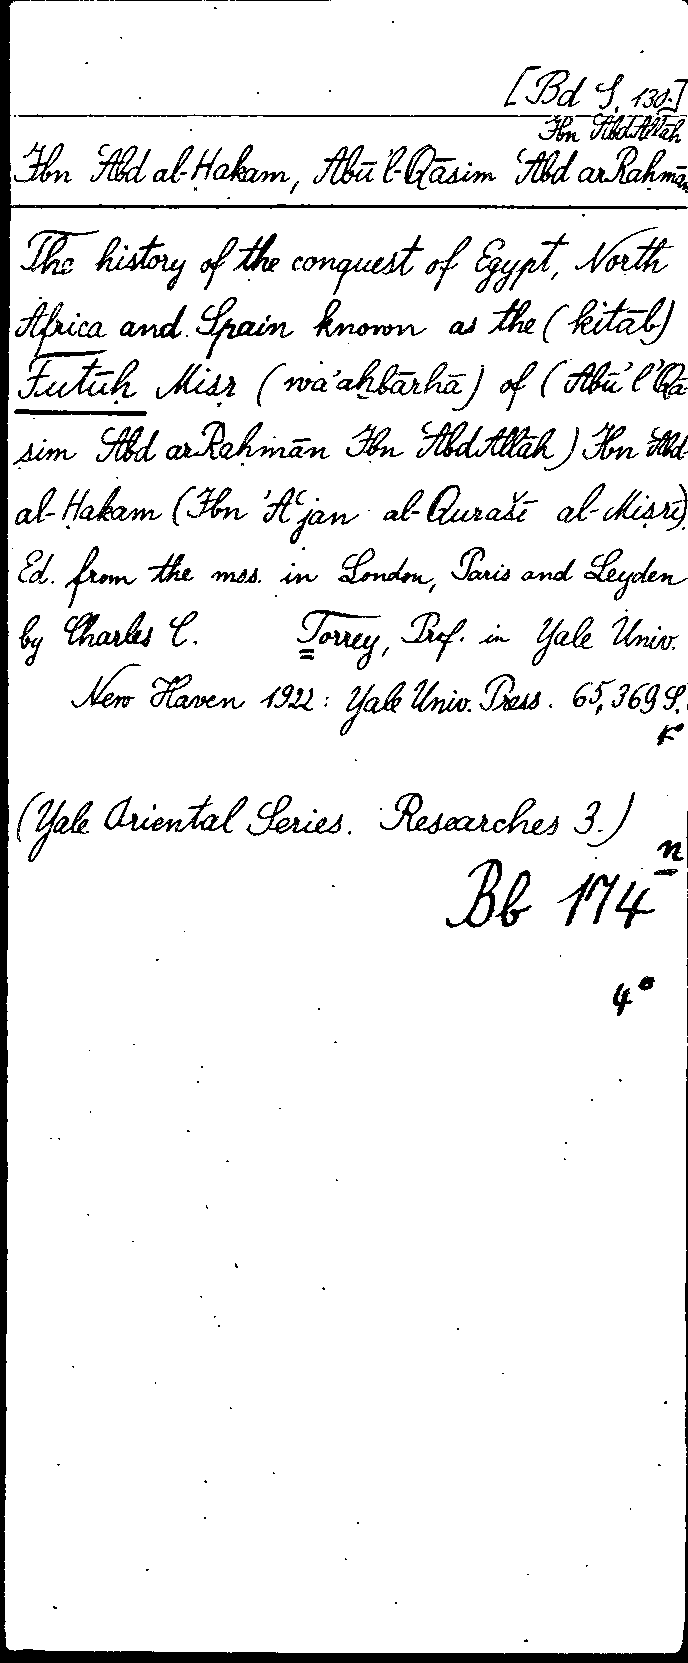 [Bd S. 130.]
Ibn ʿAbdAllāh
Ibn ʿAbd al-Ḥakam, Abū'l-Qāsim ʿAbd arRaḥmān
The history of the conquest of Egypt, North
Africa and Spain known as the (kitāb)
Futūḥ Miṣr (wa'aḫbārhā) of (Abū'l'Qā-
sim ʿAbd arRaḥmān Ibn ʿAbdAllāh) Ibn ʿAbd
al-Ḥakam (Ibn 'Aʿjan al-Qurašī al-Miṣrī)
Ed. from the mss. in London, Paris and Leyden
by Charles C. Torrey, Prof. in Yale Univ.
New Haven 1922: Yale Univ. Press. 65, 369 S.
(Yale Oriental Series. Researches 3.)
Bb 174 n
4°